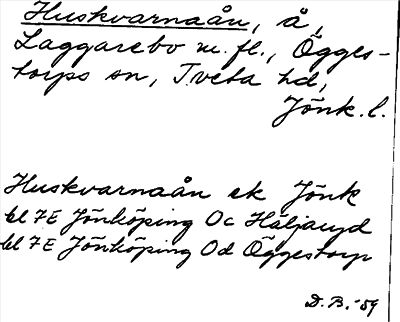 Huskvarnaån, å,
Laggarebo m.fl., Ögges-
torps sn, Tveta hd,
Jönk.l.
Huskvarnaån ek Jönk
bl 7E Jönköping 0c Häljaryd
bl 7E Jönköping 0d Öggestorp
D.B.-59